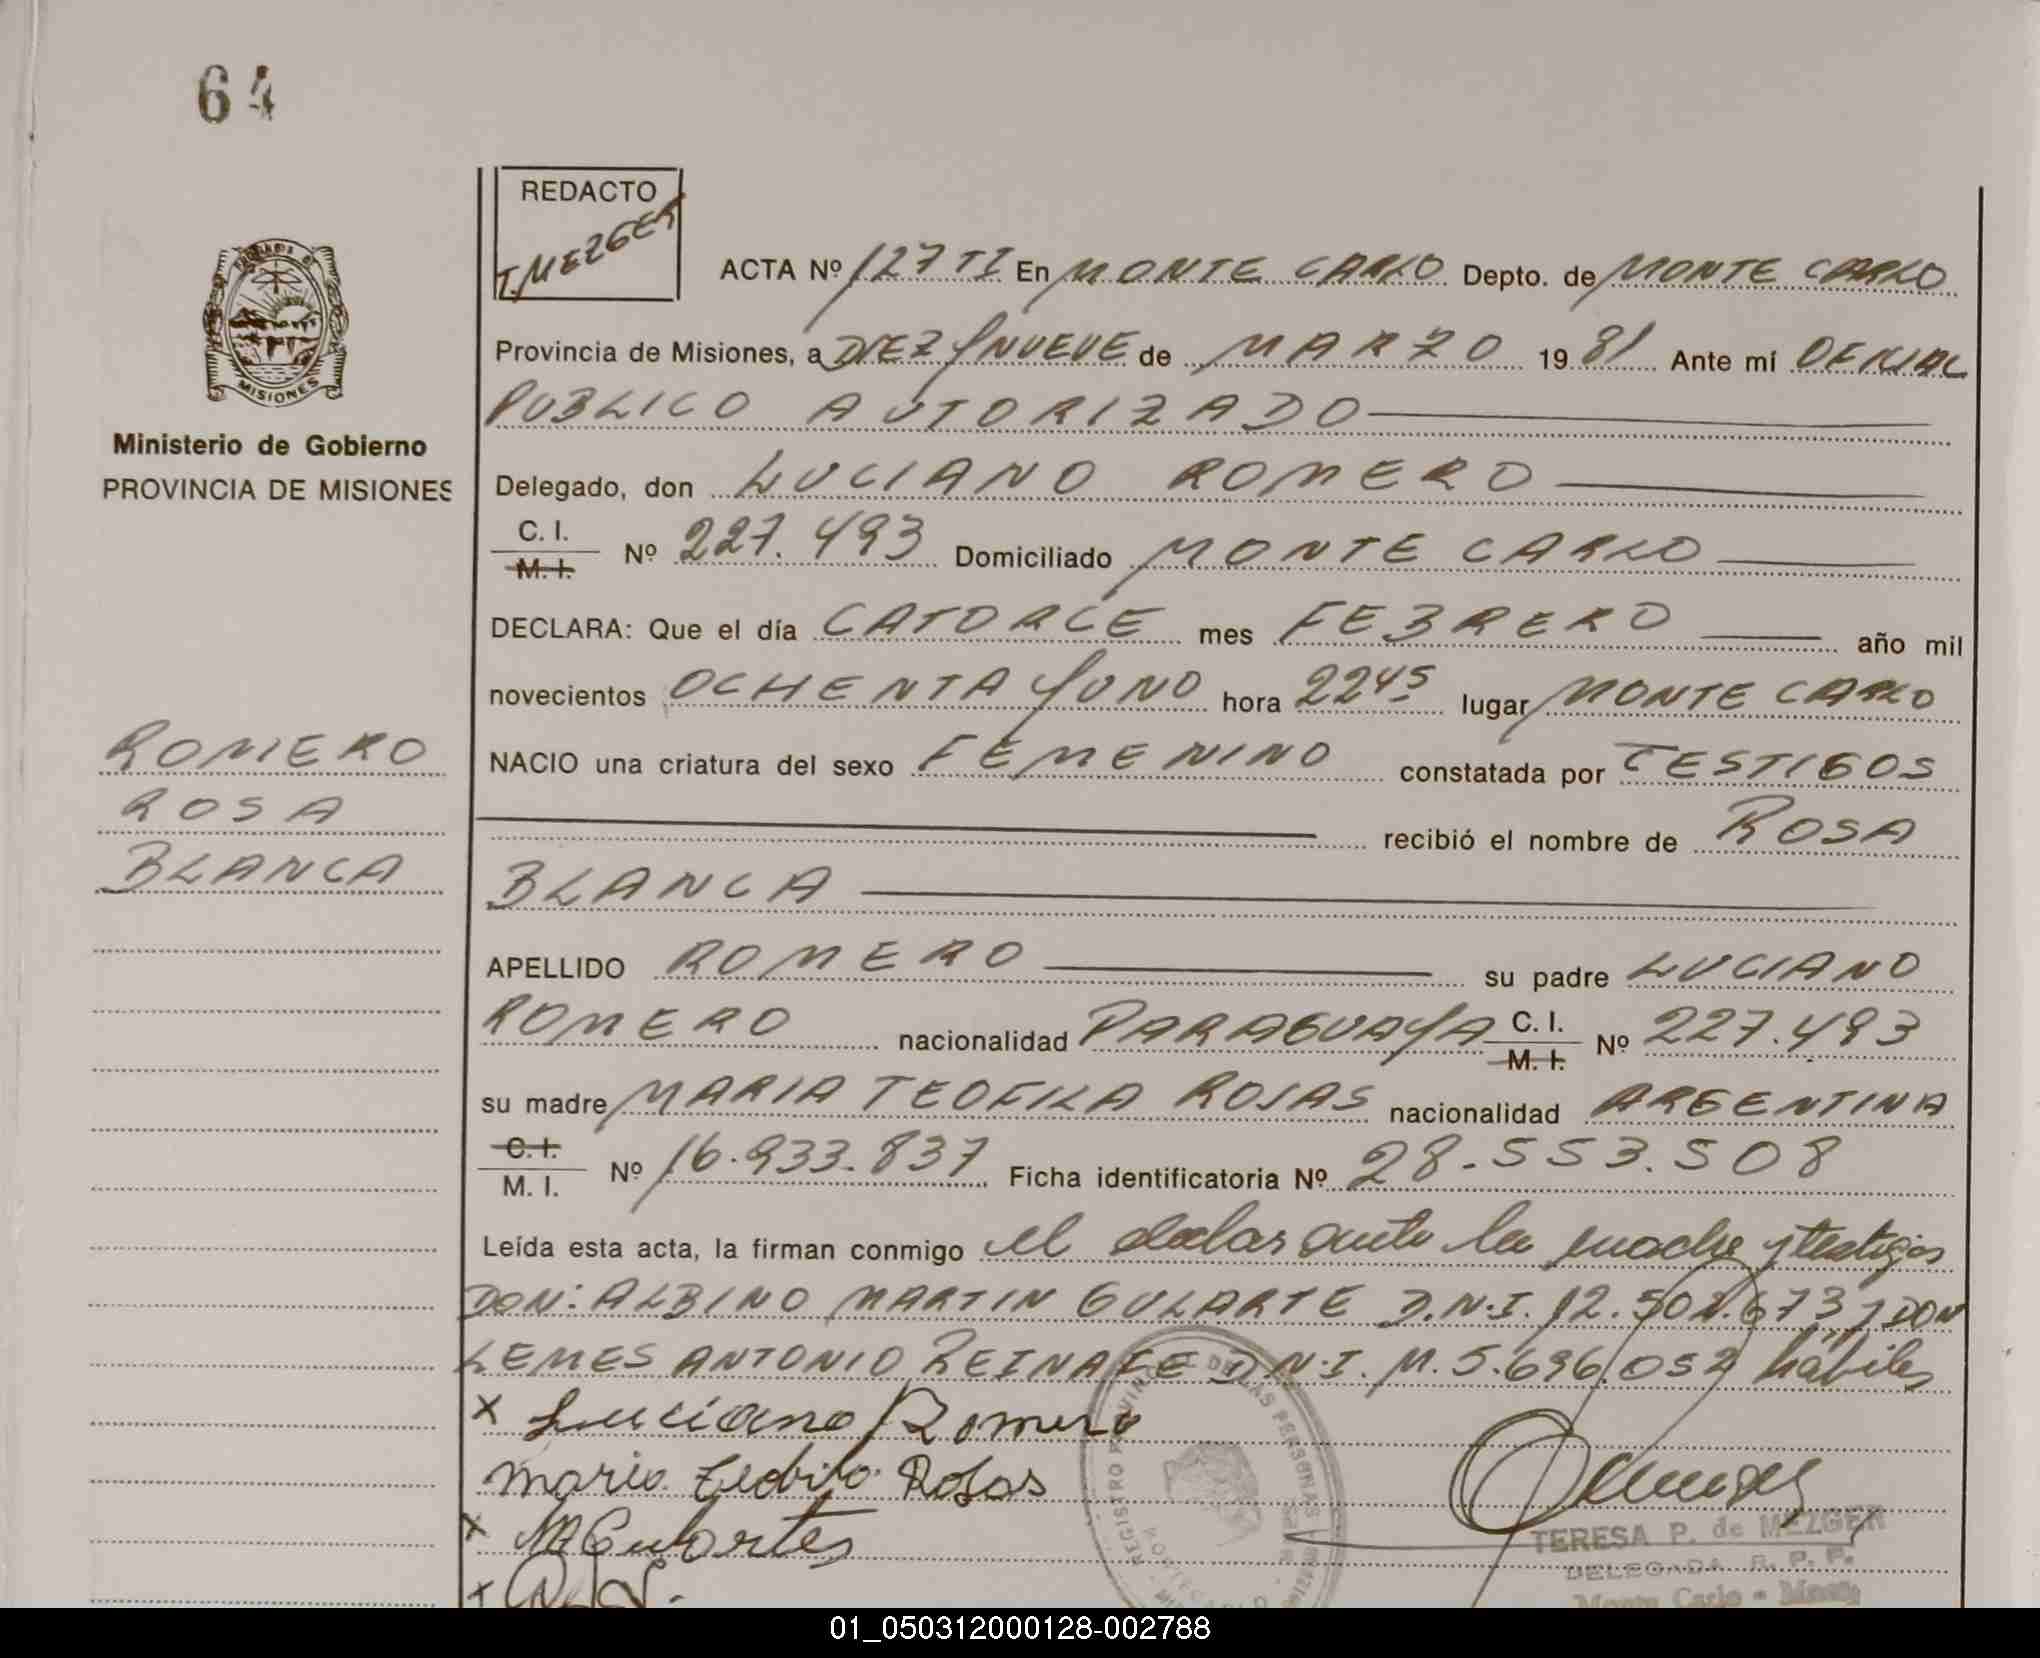 64
REDACTO
T. MEZGER
ACTA Nº 127 TI En MONTE CARLO Depto. de MONTE CARLO
MISIONES
Provincia de Misiones, a DIEZ Y NUEVE de MARZO 19 81 Ante mí OFICIAL
PUBLICO AUTORIZADO
Ministerio de Gobierno
PROVINCIA DE MISIONES
Delegado, don LUCIANO ROMERO
C. I.
M. I. Nº 227.493 Domiciliado MONTE CARLO
DECLARA: Que el día CATORCE mes FEBRERO año mil
novecientos OCHENTA Y UNO hora 2245 lugar MONTE CARLO
ROMERO
ROSA
BLANCA
NACIO una criatura del sexo FEMENINO constatada por TESTIGOS
recibió el nombre de ROSA
BLANCA
APELLIDO ROMERO su padre LUCIANO
ROMERO nacionalidad PARAGUAYA C. I. M. I. Nº 227.493
su madre MARIA TEOFILA ROJAS nacionalidad ARGENTINA
C. I.
M. I. Nº 16.933.837 Ficha identificatoria Nº 28.553.508
Leída esta acta, la firman conmigo el declarante la madre y testigos
DON: ALBINO MARTIN GULARTE D.N.I. 12.502.673 y DON
LEMES ANTONIO D.N.I. M. 5.696.052 hábiles
x Luciano Romero
Maria Rojas
x
x
REGISTRO PROVINCIAL DE LAS PERSONAS
TERESA P. de MEZGER
DELEGADA R. P. P.
Monte Carlo -
01_050312000128-002788